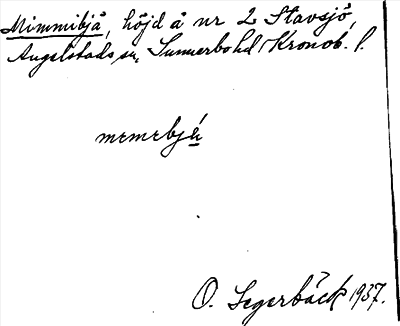 Mimmibjå, höjd å nr 2 Stavsjö,
Angelstads sn, Sunnerbohd Kronob. l.
memebjå
O. Segerbäck 1937.